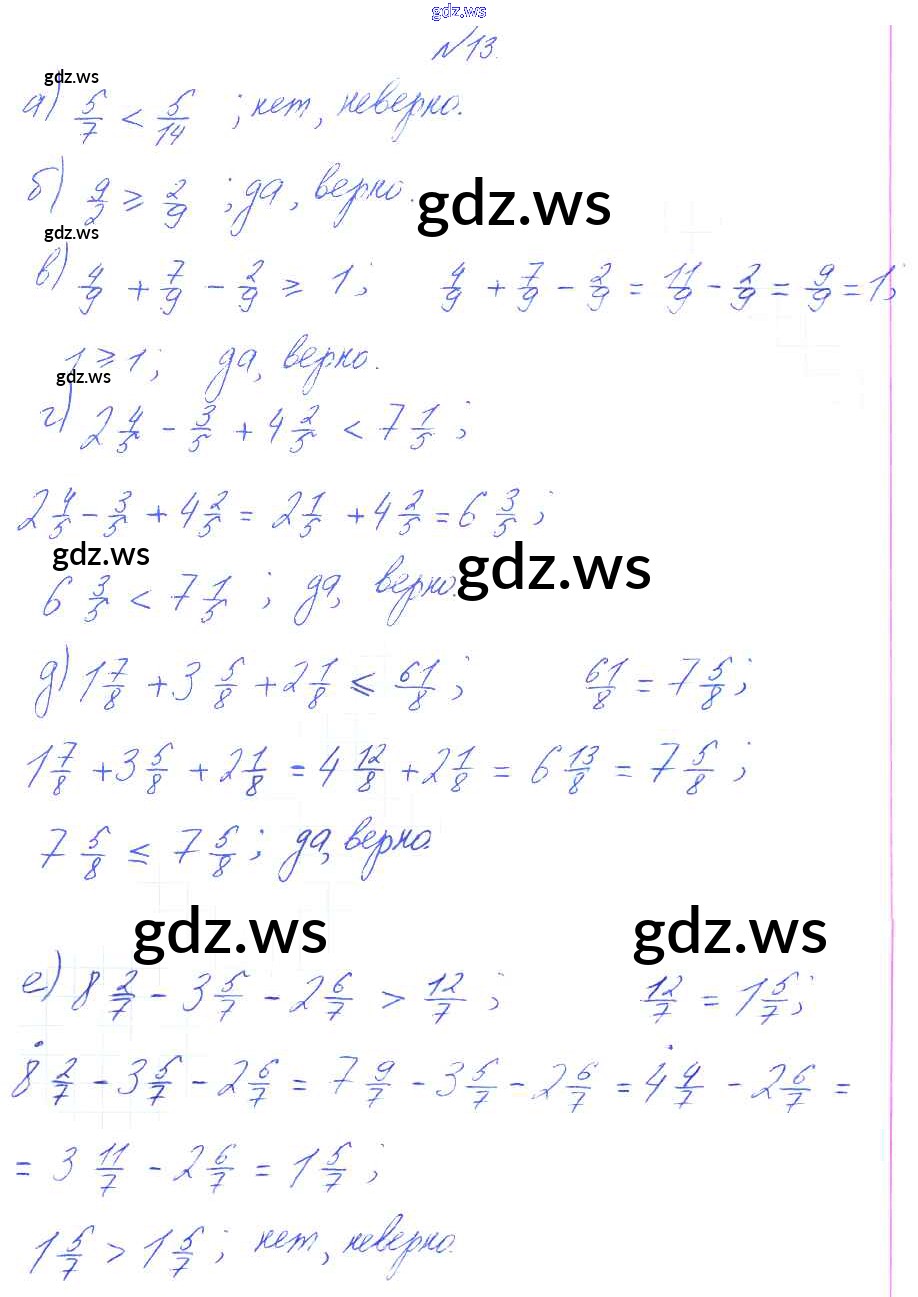 gdz.ws
№13.
gdz.ws
а) 5/7 < 5/14 ; нет, неверно.
б) 9/2 ⩾ 2/9 ; да, верно.
gdz.ws
gdz.ws
в) 4/9 + 7/9 - 2/9 ⩾ 1; 4/9 + 7/9 - 2/9 = 11/9 - 2/9 = 9/9 = 1;
1 ⩾ 1; да, верно.
gdz.ws
г) 2 4/5 - 3/5 + 4 2/5 < 7 1/5 ;
2 4/5 - 3/5 + 4 2/5 = 2 1/5 + 4 2/5 = 6 3/5 ;
gdz.ws
gdz.ws
6 3/5 < 7 1/5 ; да, верно.
д) 1 7/8 + 3 5/8 + 2 1/8 ⩽ 61/8 ; 61/8 = 7 5/8 ;
1 7/8 + 3 5/8 + 2 1/8 = 4 12/8 + 2 1/8 = 6 13/8 = 7 5/8 ;
7 5/8 ⩽ 7 5/8 ; да, верно.
gdz.ws
gdz.ws
е) 8 2/7 - 3 5/7 - 2 6/7 > 12/7 ; 12/7 = 1 5/7 ;
8 2/7 - 3 5/7 - 2 6/7 = 7 9/7 - 3 5/7 - 2 6/7 = 4 4/7 - 2 6/7 =
= 3 11/7 - 2 6/7 = 1 5/7 ;
1 5/7 > 1 5/7 ; нет, неверно.